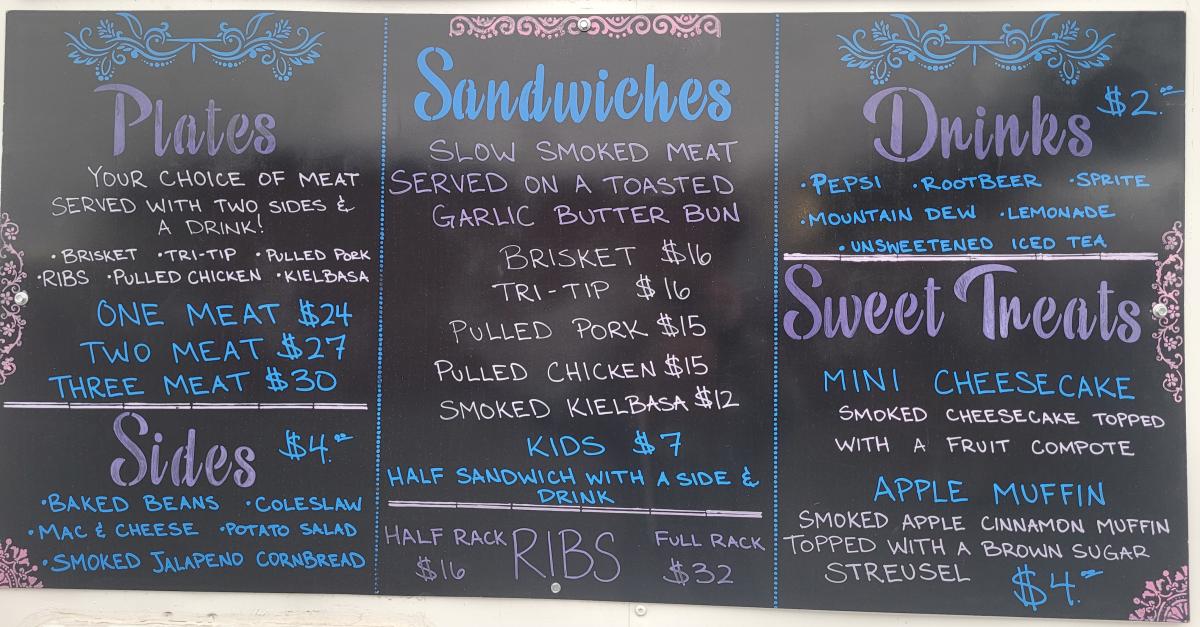 Plates
YOUR CHOICE OF MEAT
SERVED WITH TWO SIDES &
A DRINK!
• BRISKET • TRI-TIP • PULLED PORK
• RIBS • PULLED CHICKEN • KIELBASA
ONE MEAT $24
TWO MEAT $27
THREE MEAT $30
Sides $4.00
• BAKED BEANS • COLESLAW
• MAC & CHEESE • POTATO SALAD
• SMOKED JALAPENO CORNBREAD
Sandwiches
SLOW SMOKED MEAT
SERVED ON A TOASTED
GARLIC BUTTER BUN
BRISKET $16
TRI-TIP $16
PULLED PORK $15
PULLED CHICKEN $15
SMOKED KIELBASA $12
KIDS $7
HALF SANDWICH WITH A SIDE &
DRINK
HALF RACK RIBS FULL RACK
$16 $32
Drinks $2.00
• PEPSI • ROOTBEER • SPRITE
• MOUNTAIN DEW • LEMONADE
• UNSWEETENED ICED TEA
Sweet Treats
MINI CHEESECAKE
SMOKED CHEESECAKE TOPPED
WITH A FRUIT COMPOTE
APPLE MUFFIN
SMOKED APPLE CINNAMON MUFFIN
TOPPED WITH A BROWN SUGAR
STREUSEL $4.00